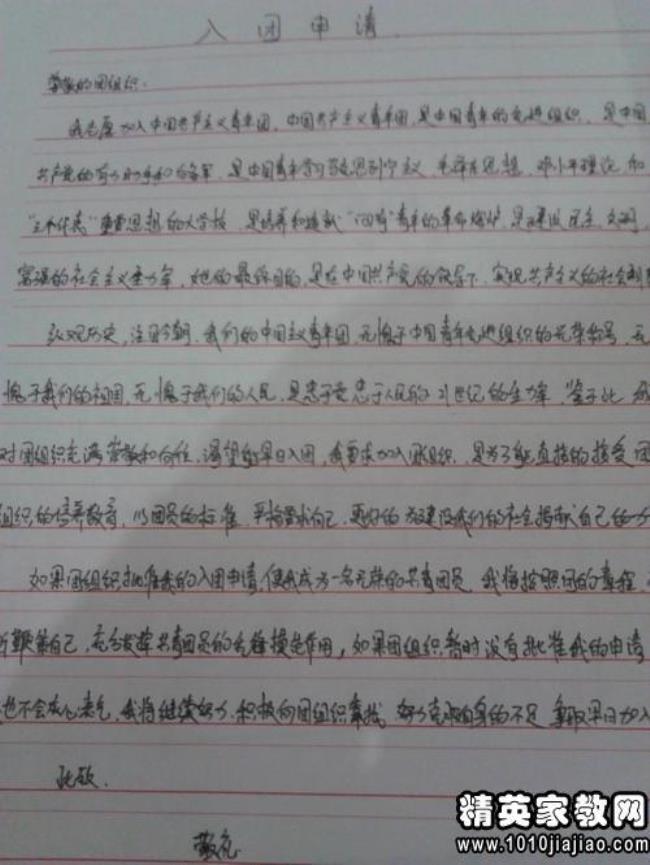 入团申请
尊敬的团组织:
我志愿加入中国共产主义青年团,中国共产主义青年团,是中国青年的先进组织,是中国
共产党的有力助手和后备军,是中国青年学习马克思列宁主义、毛泽东思想、邓小平理论,和
"三个代表"重要思想的大学校,是培养和造就"四有"青年的革命熔炉,是建设民主、文明、
富强的社会主义生力军,她的最终目的,是在中国共产党的领导下,实现共产主义的社会制
纵观历史,注目今朝,我们的中国主义青年团,无愧于中国青年先进组织的光荣称号,无
愧于我们的祖国,无愧于我们的人民,是忠于党忠于人民的21世纪的生力军,鉴于此,我
对团组织充满崇敬和向往,渴望能早日入团,我要求加入团组织,是为了能直接的接受团
组织的培养教育,以团员的标准,严格要求自己,更好的为建设我们的社会贡献自己的一分
如果团组织批准我的入团申请,使我成为一名光荣的共青团员,我将按照团的章程,
鞭策自己,充分发挥共青团员的先锋模范作用,如果团组织暂时没有批准我的申请
也不会灰心丧气,我将继续努力,积极向团组织靠拢,努力克服自身的不足,争取早日加入
此致
敬礼
精英家教网
www.1010jiajiao.com